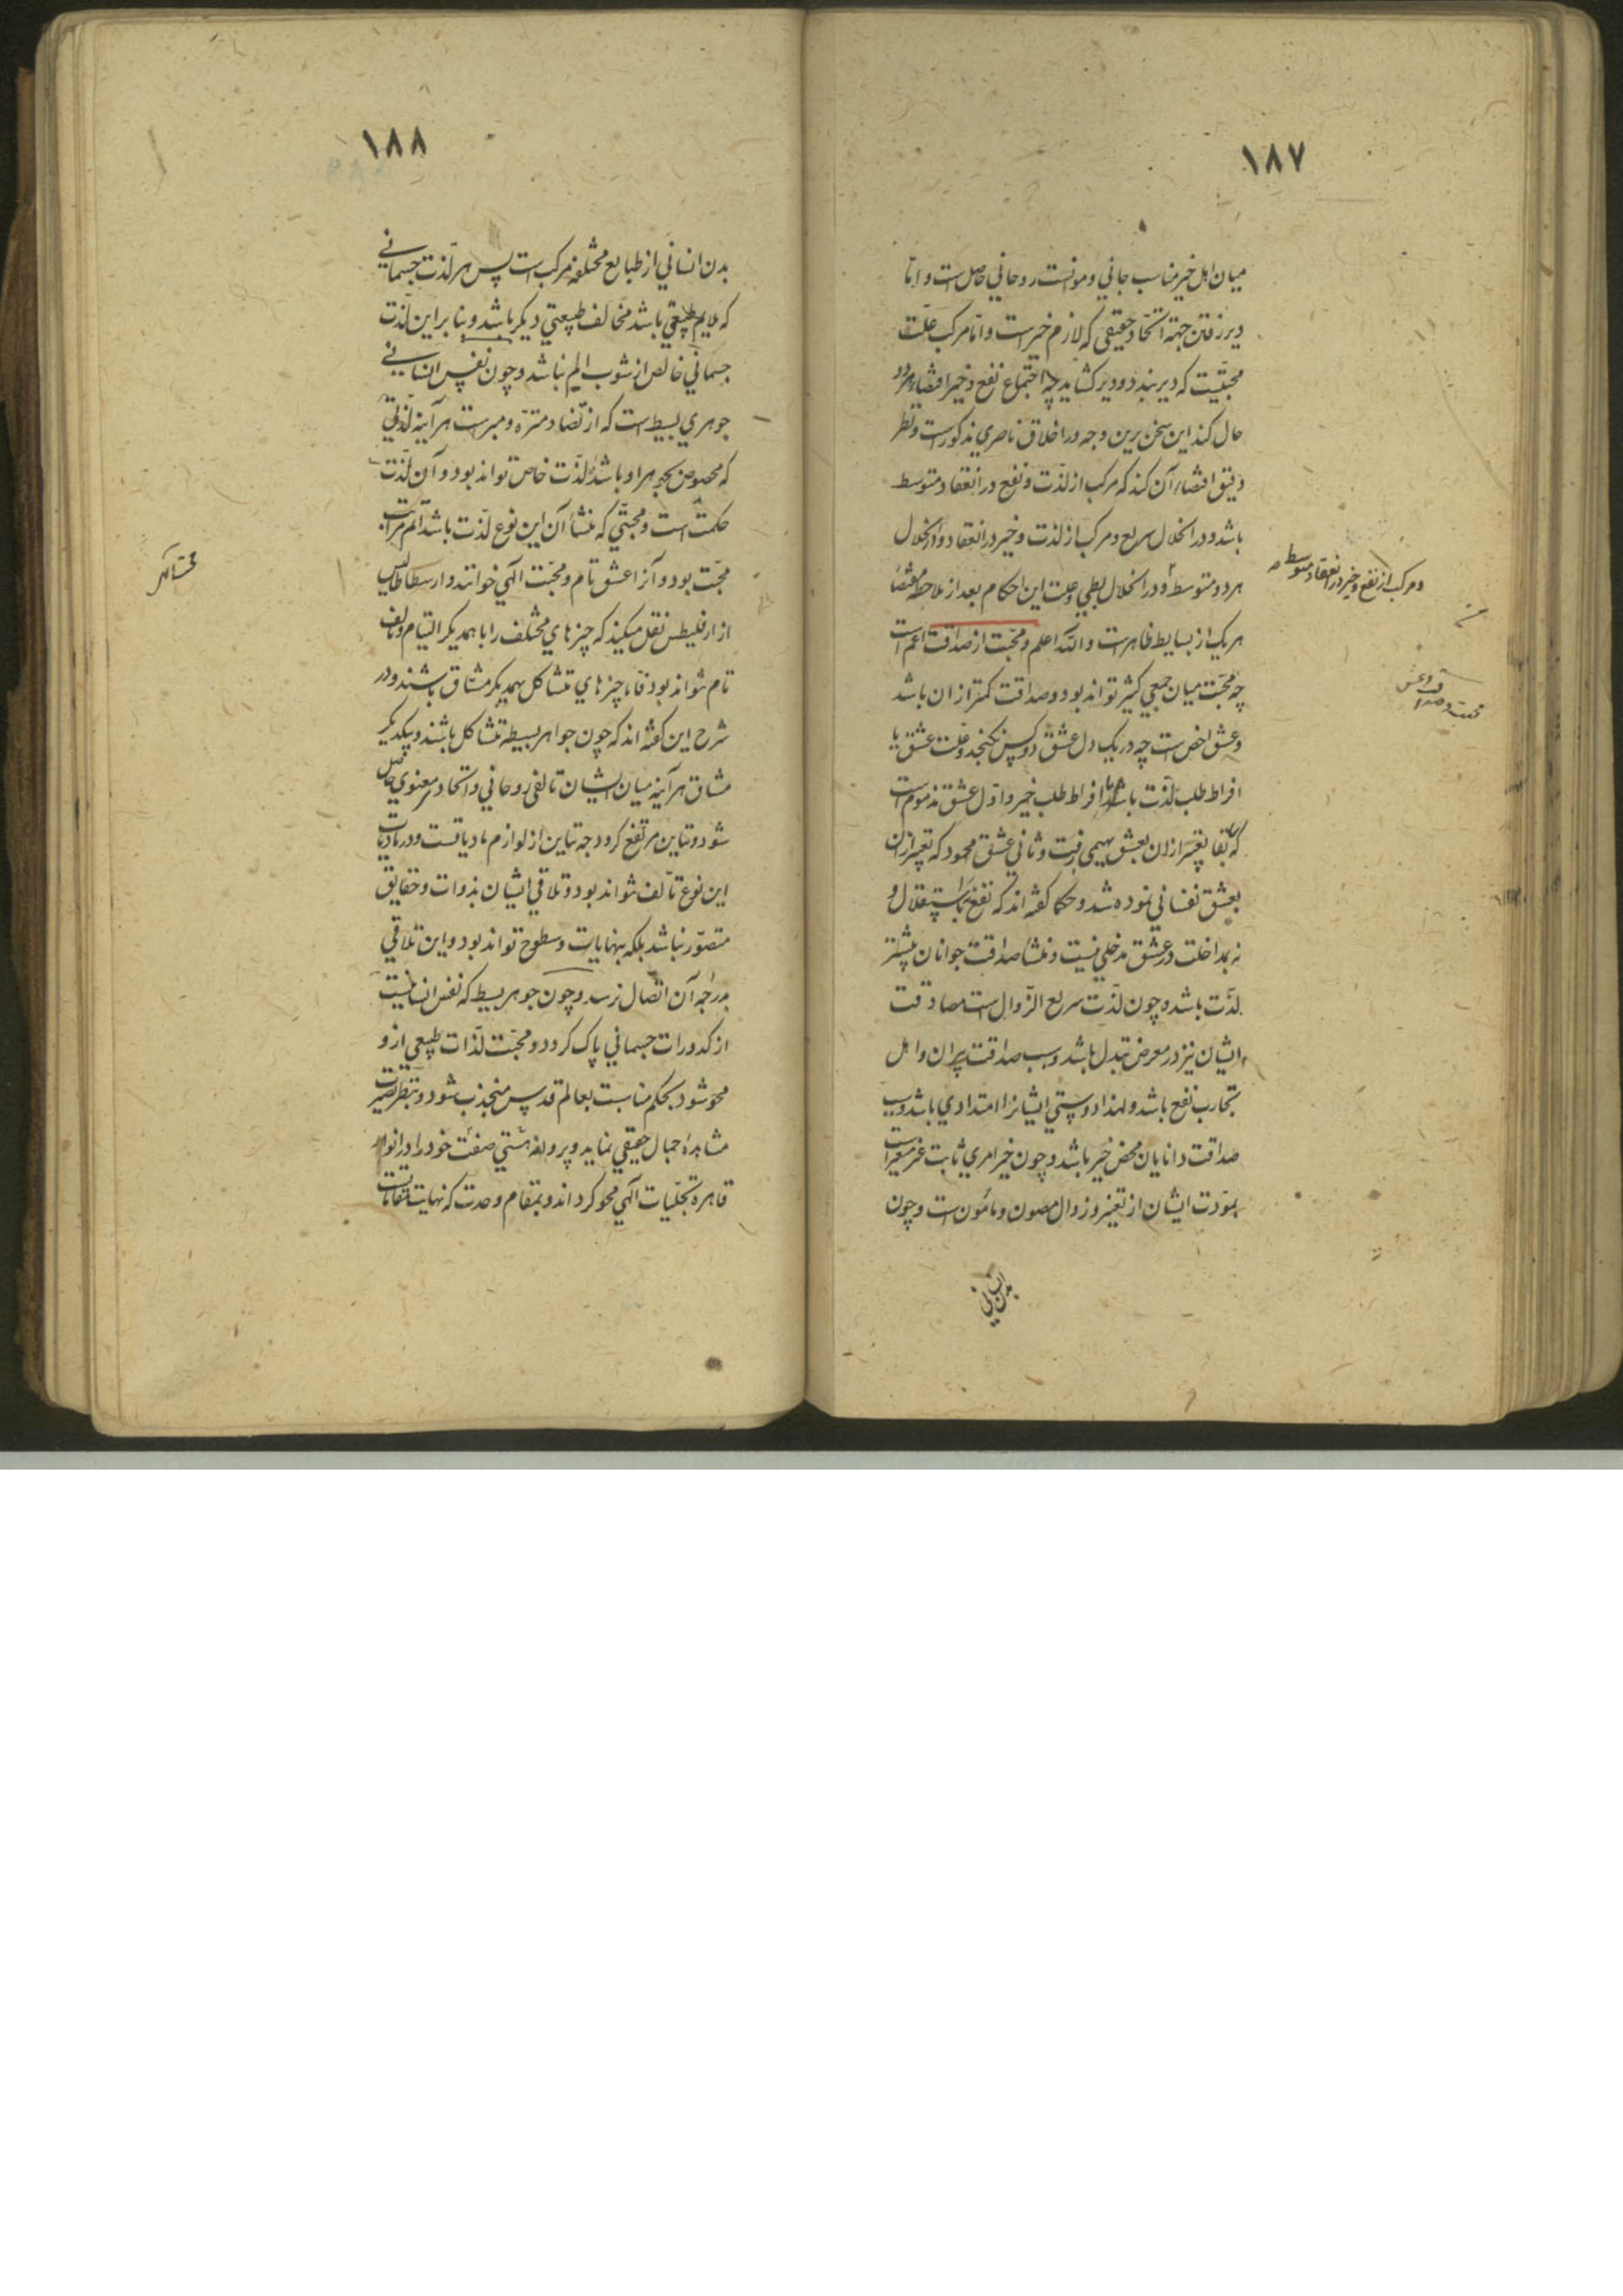 ١٨٧
میان اهل خیر مناسب جانی و موانست روحانی حاصل است و اما
دیر رفتن جهة اتحاد حقیقی که لازم خیرست و اما مرکب علت
محبتیست که دیر بندد و دیر کشاید چه اجتماع نفع و خیر اقتضاء هر دو
حال کند این سخن برین وجه در اخلاق ناصری مذکورست و نظر
دقیق اقتضاء آن کند که مرکب از لذت و نفع در انعقاد متوسط
باشد و در انحلال سریع و مرکب از لذت و خیر در انعقاد و انحلال
هر دو متوسط و در انحلال بطی و علت این احکام بعد از ملاحظه مقتضا
و مرکب از نفع و خیر در انعقاد متوسط
هر یک از بسایط ظاهرست والله اعلم و محبت از صداقت اعم است
محبت و صداقت و عشق
چه محبت میان جمعی کثیر تواند بود و صداقت کمتر از ان باشد
و عشق اخص است چه در یک دل عشق دو کس نکنجد و علت عشق یا
افراط طلب لذت باشد یا افراط طلب خیر و اول عشق مذموم است
که تعبیر ازان بعشق بهیمی رفت و ثانی عشق محمود که تعبیر ازان
بعشق نفسانی نموده شد و حکما کفته اند که نفع را نه باستقلال و
نه بمداخلت در عشق مدخلی نیست و منشا صداقت جوانان بیشتر
لذت باشد و چون لذت سریع الزوال است مصادقت
ایشان نیز در معرض تبدل باشد و سبب صداقت پیران و اهل
تجارب نفع باشد و لهذا دوستی ایشانرا امتدادی باشد و سبب
صداقت دانایان محض خیر باشد و چون خیر امری ثابت غیر متغیر است
مودت ایشان از تغیر و زوال مصون و مامون است و چون
بدن انسانی
١٨٨
بدن انسانی از طبایع مختلفه مرکب است پس هر لذت جسمانی
که ملایم طبیعتی باشد مخالف طبیعتی دیکر باشد و بنا برین لذت
جسمانی خالص از شوب الم نباشد و چون نفس انسانی
جوهری بسیط است که از تضاد منزه و مبرست هر آینه لذتی
که مخصوص بجوهر او باشد لذت خاص تواند بود و آن لذت
حکمت است و محبتی که منشأ آن این نوع لذت باشد اتم مراتب
محبت بود و آنرا عشق تام و محبت الهی خوانند و ارسطاطالیس
از ارقلیطس نقل میکند که چیزهای مختلف را با همدیکر التیام و تالف
تام نتواند بود فاما چیزهای متشاکل بهمدیکر مشتاق باشند و در
شرح این کفته اند که چون جواهر بسیطه متشاکل باشند و بیکدیکر
مشتاق هر آینه میان ایشان تالفی روحانی و اتحاد معنوی حاصل
شود و تباین مرتفع کردد چه تباین از لوازم مادیاتست و در مادیات
این نوع تألف نتواند بود و تلاقی ایشان بذوات و حقایق
متصور نباشد بلکه بنهایات و سطوح تواند بود و این تلاقی
بدرجه آن اتصال نرسد و چون جوهر بسیط که نفس انسانیست
از کدورات جسمانی پاک کردد و محبت لذات طبیعی ازو
محو شود بحکم مناسبت بعالم قدس منجذب شود و بنظر بصیرت
مشاهده جمال حقیقی نماید و پروانه هستی صفت خود را در انوار
قاهره تجلیات الهی محو کرداند و بمقام وحدت که نهایت مقامات